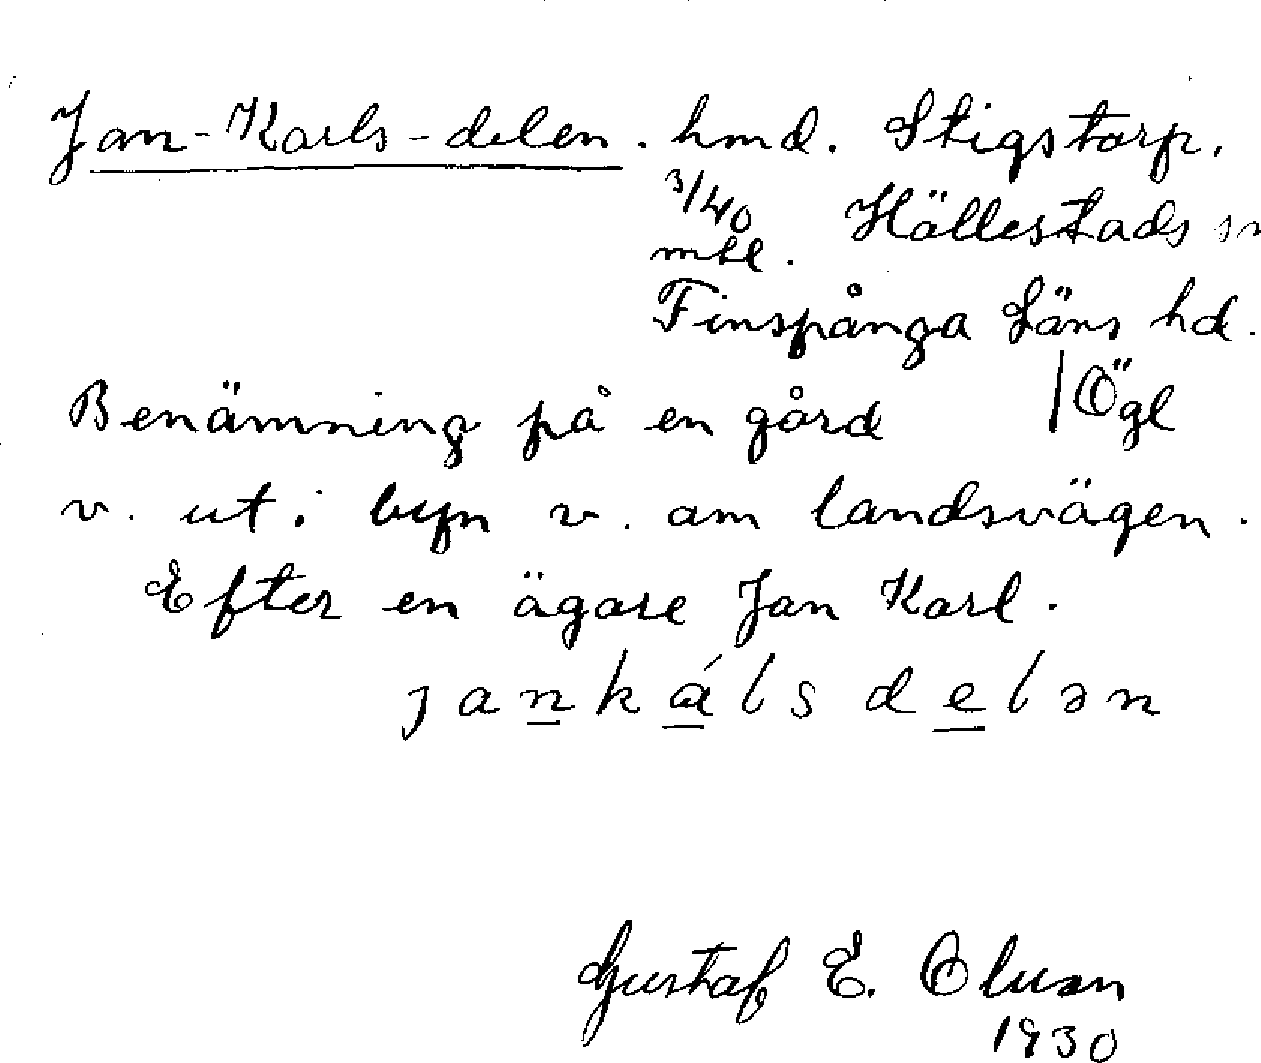 Jan-Karls-delen. hmd. Stigstorp.
3/40 mtl. Hällestads sn
Finspånga Läns hd.
Benämning på en gård /Ögl
v. ut i byn v. om landsvägen.
Efter en ägare Jan Karl.
jankálsdelən
Gustaf E. Olsson
1930